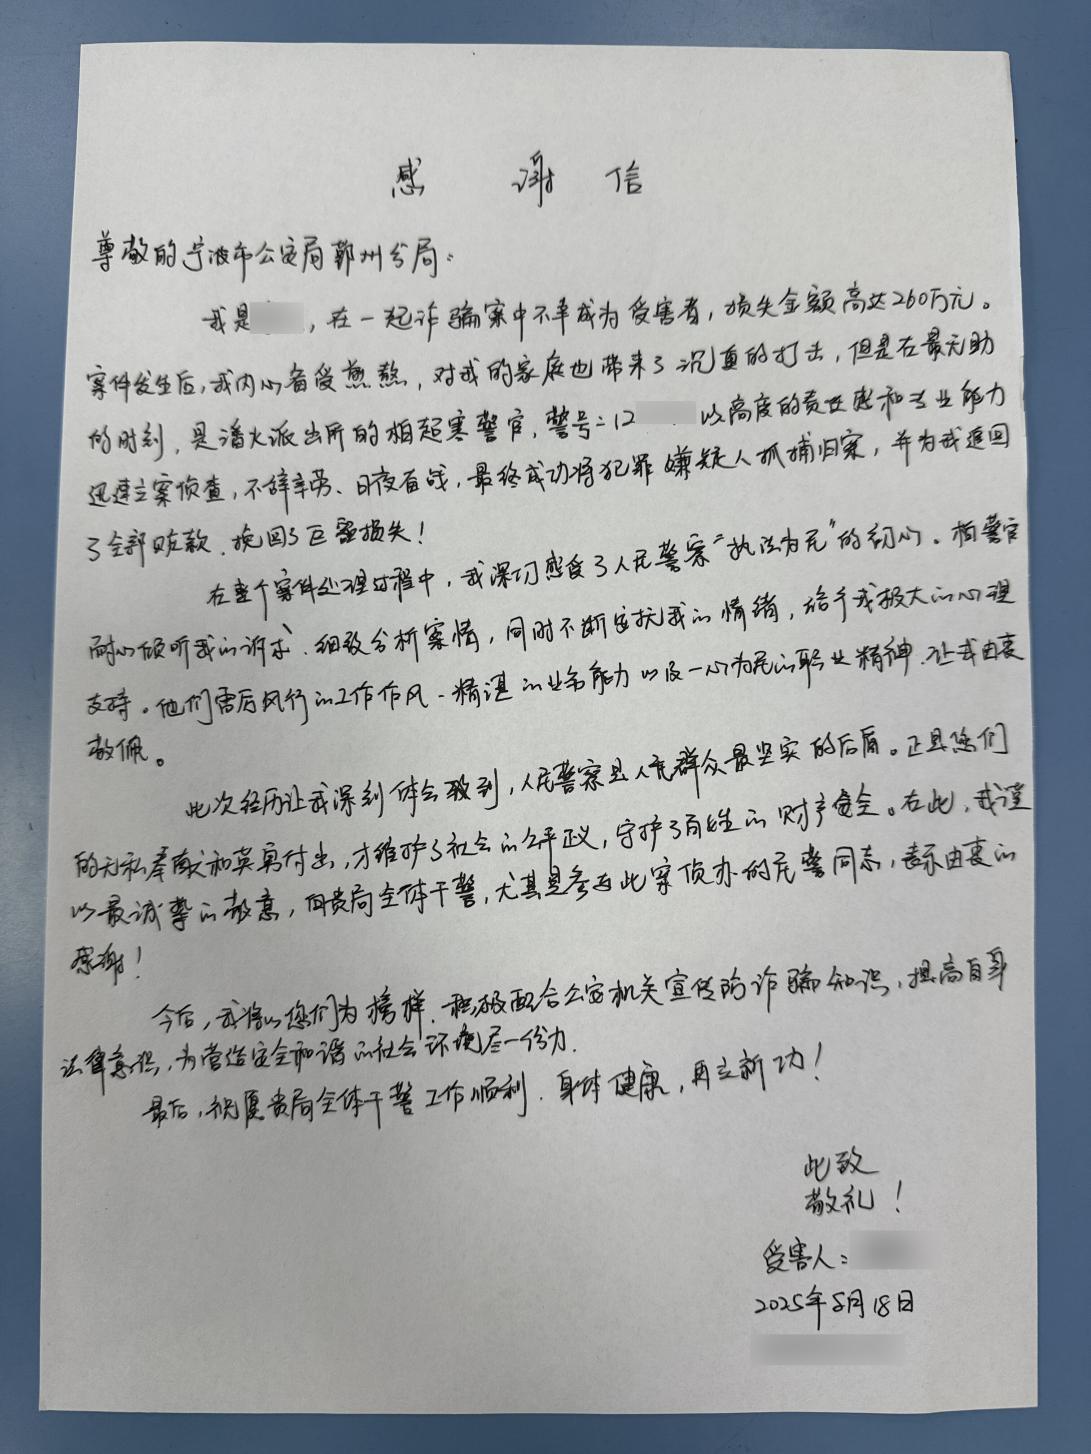 感谢信
尊敬的宁波市公安局鄞州分局：
我是，在一起诈骗案中不幸成为受害者，损失金额高达260万元。
案件发生后，我内心备受煎熬，对我的家庭也带来了沉重的打击，但是在最无助
的时刻，是潘火派出所的柏起寒警官，警号：12 以高度的责任感和专业能力
迅速立案侦查，不辞辛劳、日夜奋战，最终成功将犯罪嫌疑人抓捕归案，并为我追回
了全部赃款，挽回了巨额损失！
在整个案件处理过程中，我深切感受了人民警察“执法为民”的初心。柏警官
耐心倾听我的诉求、细致分析案情，同时不断安抚我的情绪，给予我极大的心理
支持。他们雷厉风行的工作作风、精湛的业务能力以及一心为民的职业精神，让我由衷
敬佩。
此次经历让我深刻体会到，人民警察是人民群众最坚实的后盾。正是您们
的无私奉献和英勇付出，才维护了社会的公平正义，守护了百姓的财产安全。在此，我谨
以最诚挚的敬意，向贵局全体干警，尤其是参与此案侦办的民警同志，表示由衷的
感谢！
今后，我将以您们为榜样，积极配合公安机关宣传防诈骗知识，提高自身
法律意识，为营造安全和谐的社会环境尽一份力。
最后，祝愿贵局全体干警工作顺利，身体健康，再立新功！
此致
敬礼！
受害人：
2025年8月18日